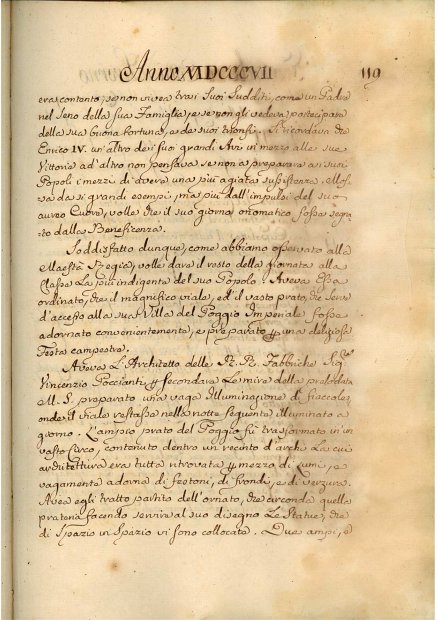 Anno MDCCCVII 119
era contento, se non vivea trai suoi Sudditi, come un Padre
nel Seno della sua Famiglia, e se non gli vedeva partecipare
della sua buona fortuna, e de suoi trionfi. Si ricordava che
Enrico IV. un'altro dei suoi grandi Avi in mezzo alle sue
Vittorie ad'altro non pensava se non a preparare ai suoi
Popoli i mezzi di avere una più agiata sussistenza. Mos-
sa da sì grandi esempi, ma più dall'impulsi del suo
aureo Cuore, volle che il suo giorno onomastico fosse segna-
to dalla Beneficenza.
Soddisfatto dunque, come abbiamo osservato alla
Maestà Regia, volle dare il resto della giornata alla
Classe La più indigente del suo Popolo. Aveva Essa
ordinato, che il magnifico viale, ed il vasto prato, che serve
d'accesso alla sua Villa del Poggio Imperiale fosse
adornato convenientemente, e preparato per una deliziosa
Festa campestre.
Aveva L'Architetto delle R. R. Fabbriche Sigre
Vincenzio Poccianti per secondare Le mire della prelodata
M. S. preparato una vaga Illuminazione di fiaccole,
onde il viale restasse nella notte seguente illuminato a
giorno. L'ampio prato del Poggio fù trasformato in un
vasto Circo, contenuto dentro un recinto d'archi La cui
architettura era tutta ritrovata per mezzo di Lumi, e
vagamente adorna di festoni, di frondi, e di verzura.
Avea egli tratto partito dell'ornato, che circonda quella
prateria facendo servire al suo disegno Le Statue, che
di spazio in spazio vi sono collocate. Due ampi, e